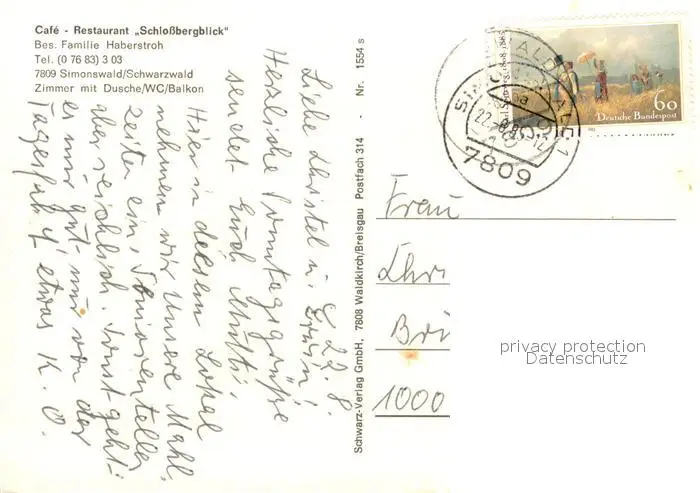 Café - Restaurant „Schloßbergblick"
Bes. Familie Haberstroh
Tel. (0 76 83) 3 03
7809 Simonswald/Schwarzwald
Zimmer mit Dusche/WC/Balkon
22. 8.
Liebe Christel u. Erwin!
Herzliche Sonntagsgrüße
sendet Euch Mutti
Hier in diesem Lokal
nehmen wir unsere Mahl
zeiten ein, Seniorenteller
aber reichlich. Sonst geht
es mir gut nur von der
Tagesfahrt etwas K. O.
Schwarz-Verlag GmbH, 7808 Waldkirch/Breisgau Postfach 314 - Nr. 1554 s
60
Deutsche Bundespost
7809
Frau
Chr
Bri
1000
privacy protection
Datenschutz